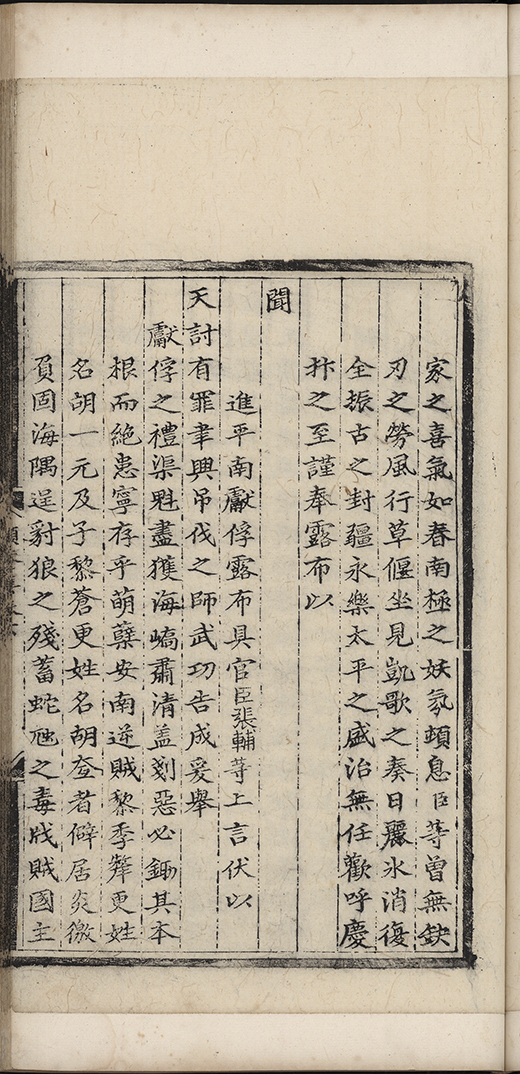 家之喜氣如春南極之妖氛頓息臣等曾無鈌
刃之勞風行草偃坐見凱歌之奏日麗氷消復
全振古之封疆永樂太平之盛治無任歡呼慶
抃之至謹奉露布以
聞
進平南獻俘露布具官臣張輔等上言伏以
天討有罪聿興吊伐之師武功告成爰舉
獻俘之禮渠魁盡獲海嶠肅清盖剗惡必鋤其本
根而絶患寧存乎萌蘖安南逆賊黎季犛更姓
名胡一元及子黎蒼更姓名胡𡗨者僻居炎徼
負固海隅逞豺狼之殘蓄蛇虺之毒戕賊國主